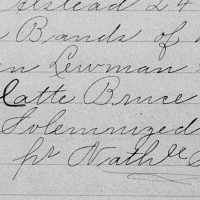 alstead 24
Bands of
Lewman
Catte Bruce
Solemnized
pr Nathle